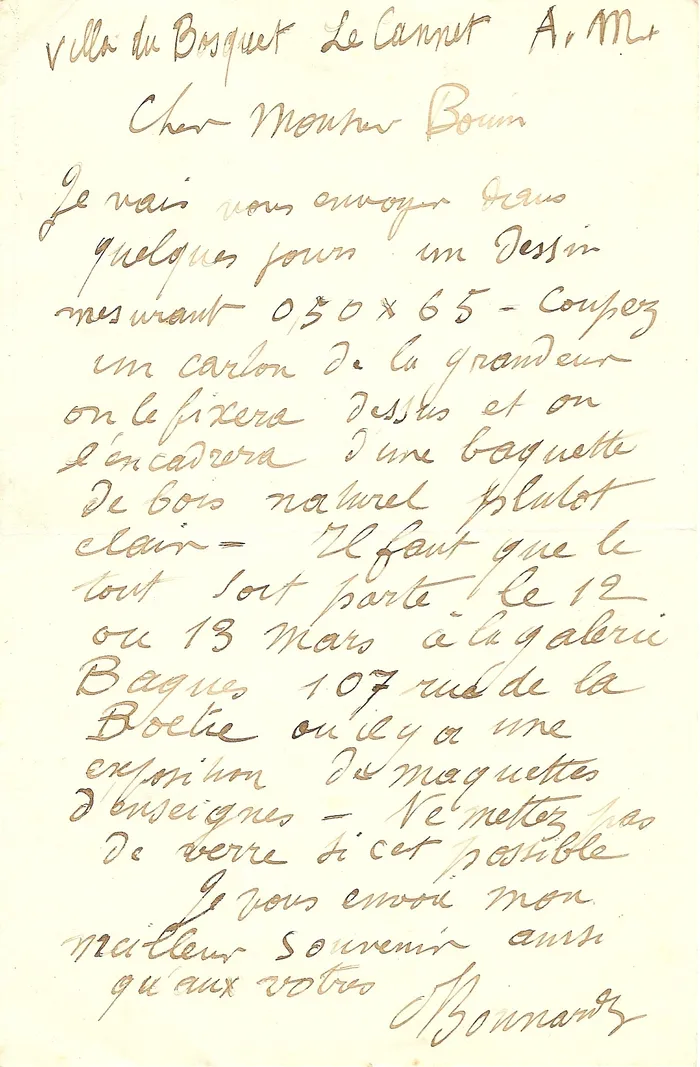 Villa du Bosquet Le Cannet A. M.
Cher Monsieur Bouin
Je vais vous envoyer dans
quelques jours un dessin
mesurant 0,50 x 65 - Coupez
un carton de la grandeur
on le fixera dessus et on
l'encadrera d'une baguette
de bois naturel plutot
clair = Il faut que le
tout soit porté le 12
ou 13 mars à la galerie
Bagues 107 rue de la
Boëtie ou il y a une
exposition de maquettes
d'enseignes - Ne mettez pas
de verre si cet possible
Je vous envoie mon
meilleur souvenir ainsi
qu'aux votres
PBonnard